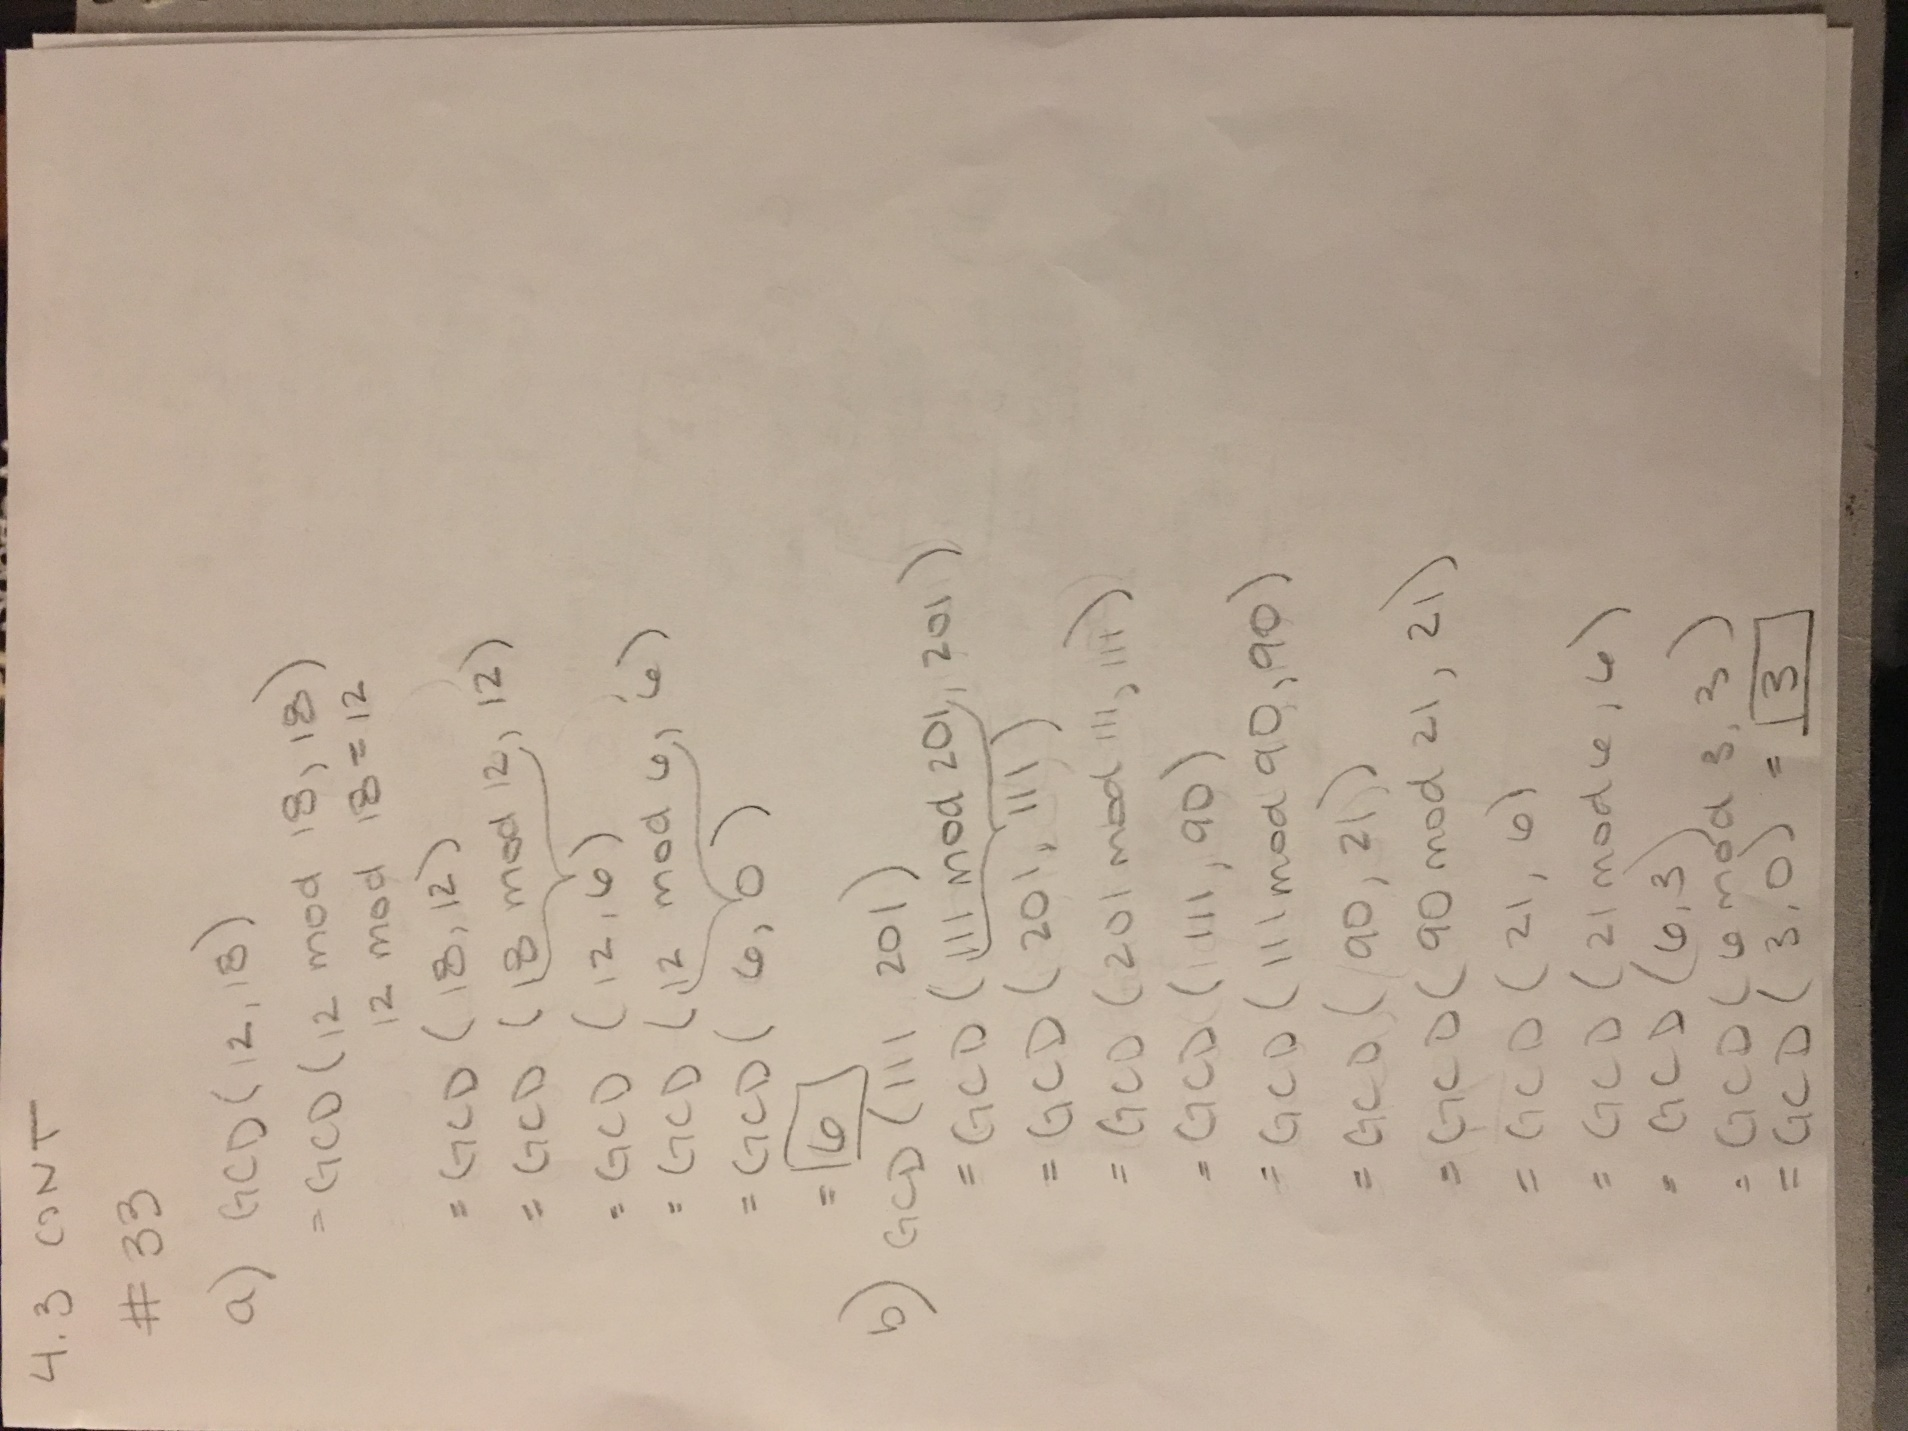 4.3 CONT
#33
a) GCD(12,18)
= GCD(12 mod 18, 18)
12 mod 18 = 12
= GCD (18,12)
= GCD (18 mod 12, 12)
= GCD (12,6)
= GCD (12 mod 6, 6)
= GCD( 6, 0)
= 6
b) GCD (111 201)
= GCD (111 mod 201, 201)
= GCD (201, 111)
= GCD (201 mod 111, 111)
= GCD (111, 90)
= GCD (111 mod 90, 90)
= GCD (90, 21)
= GCD (90 mod 21, 21)
= GCD (21, 6)
= GCD (21 mod 6, 6)
= GCD (6,3)
= GCD (6 mod 3, 3)
= GCD (3,0) = 3